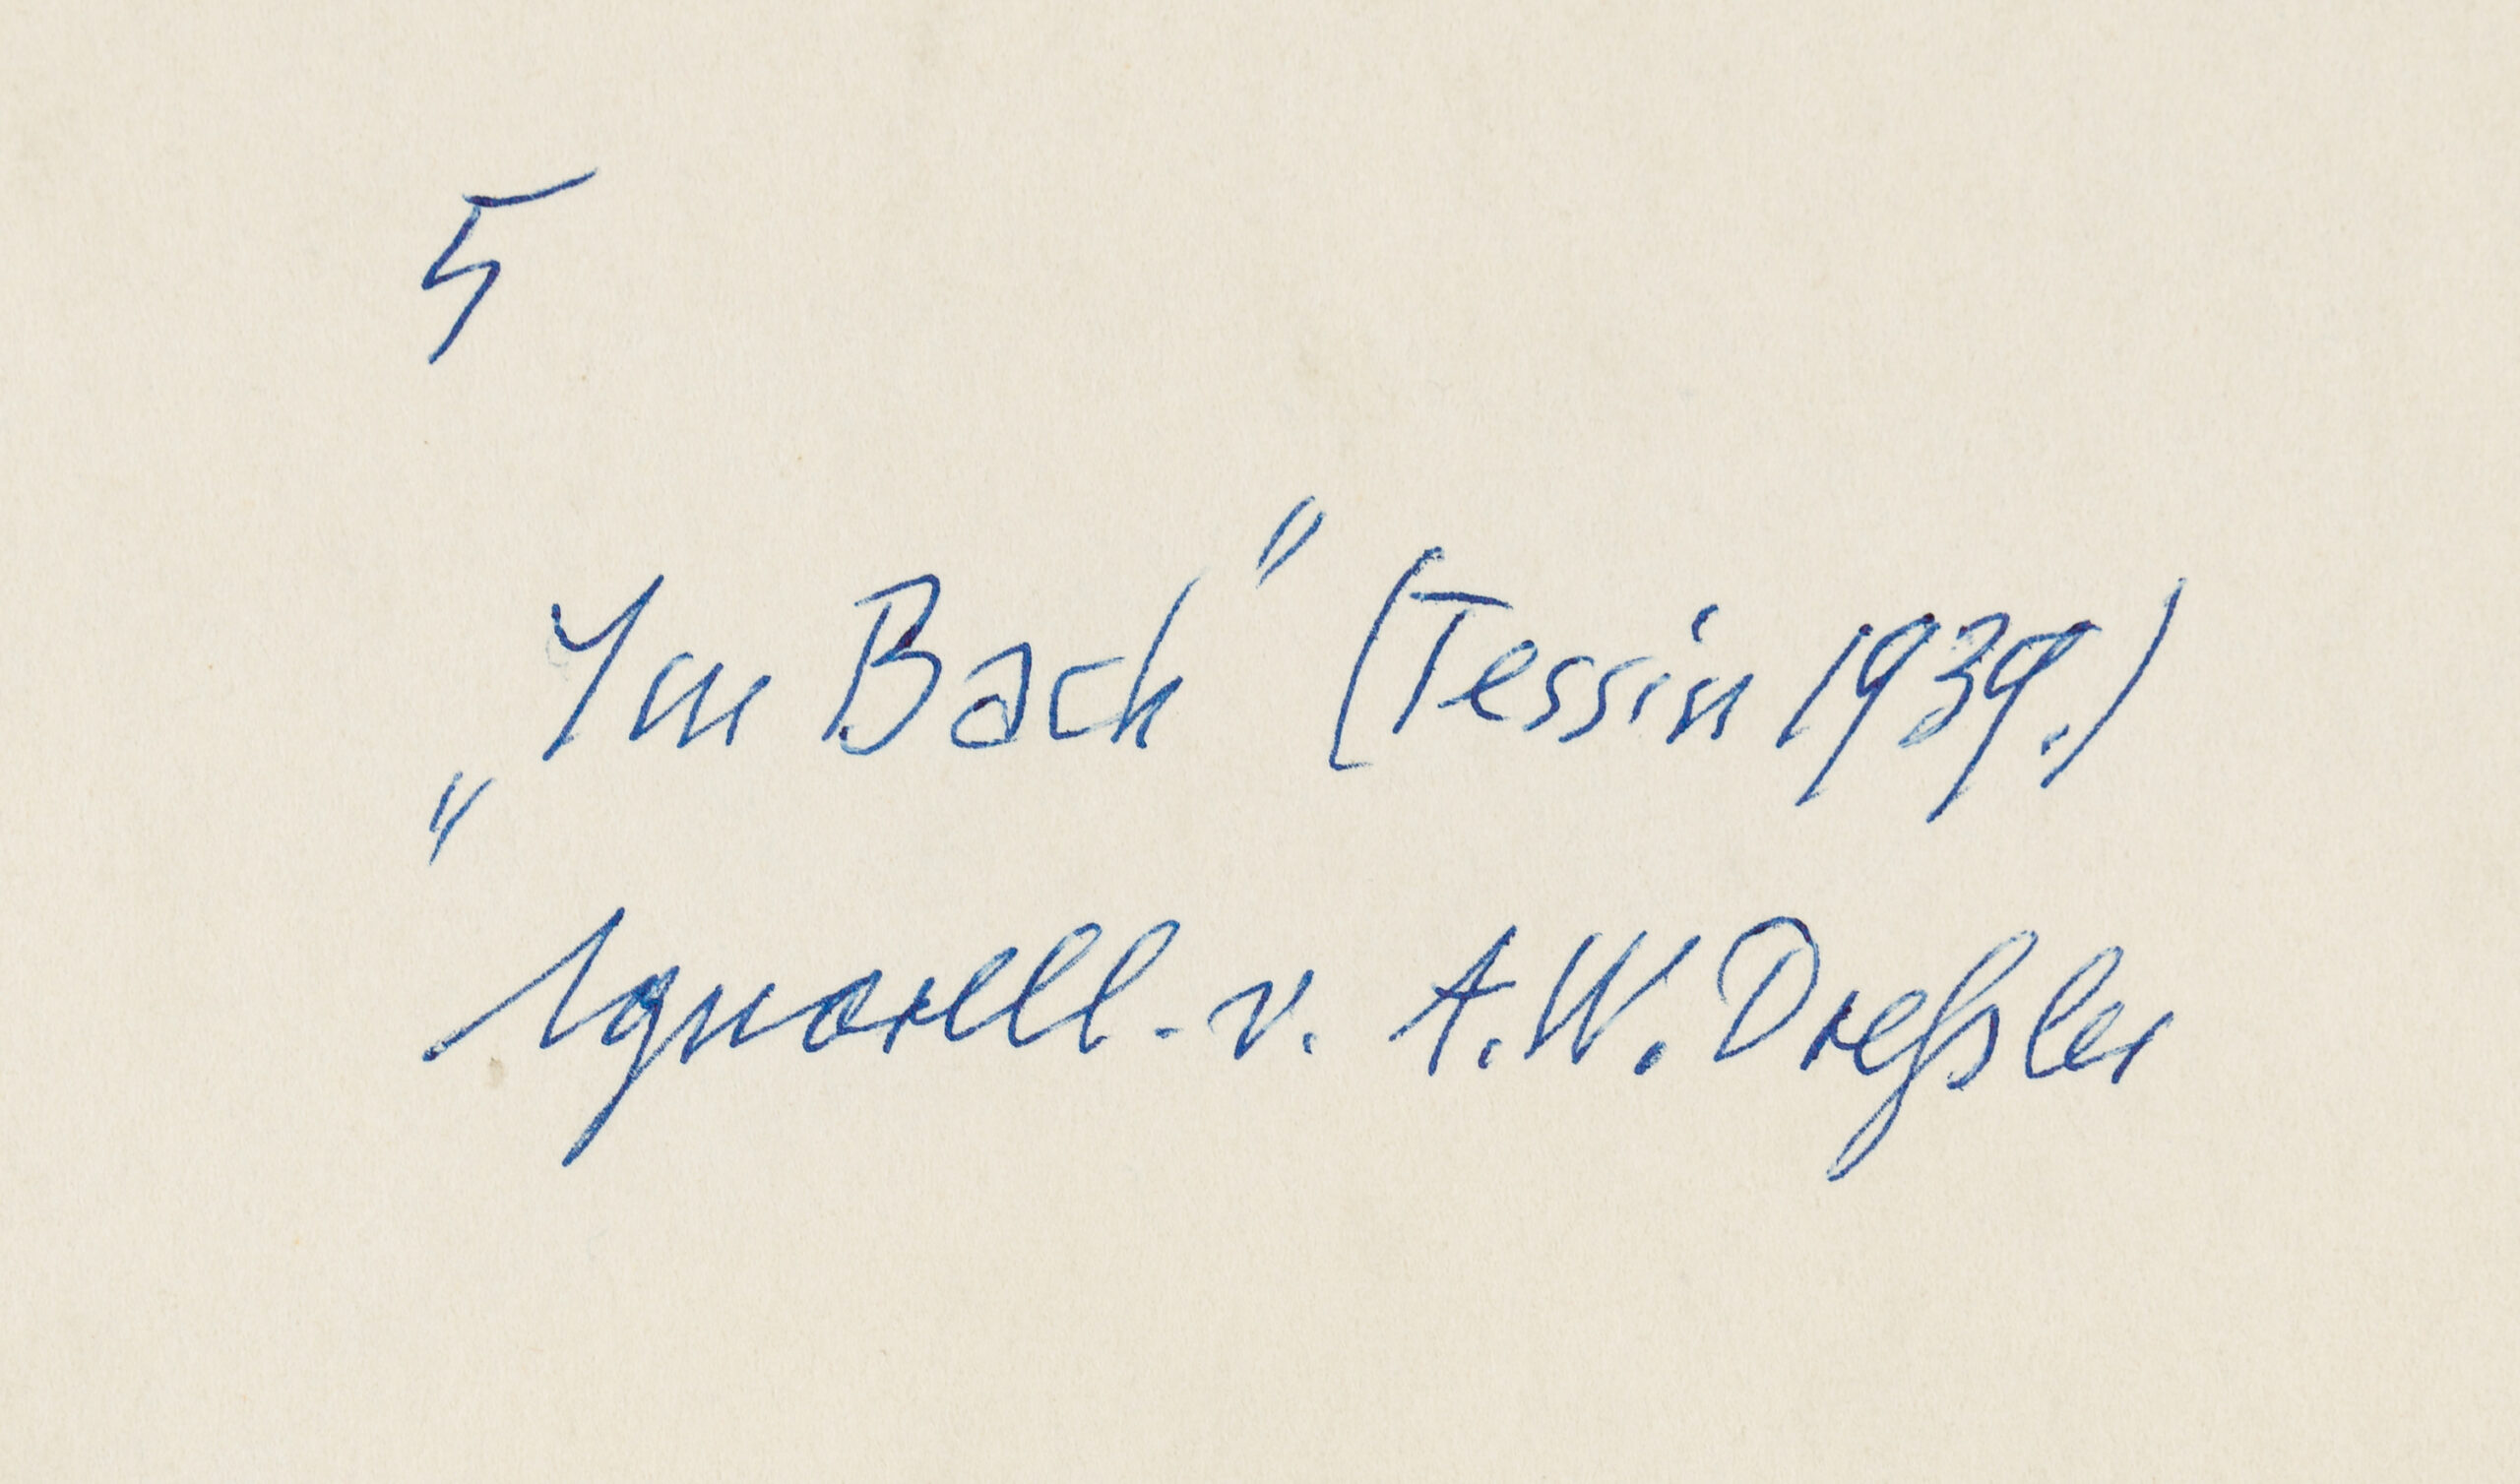 5
„Im Bach" (Tessin 1939.)
Aquarell. v. A.W. Dreßler